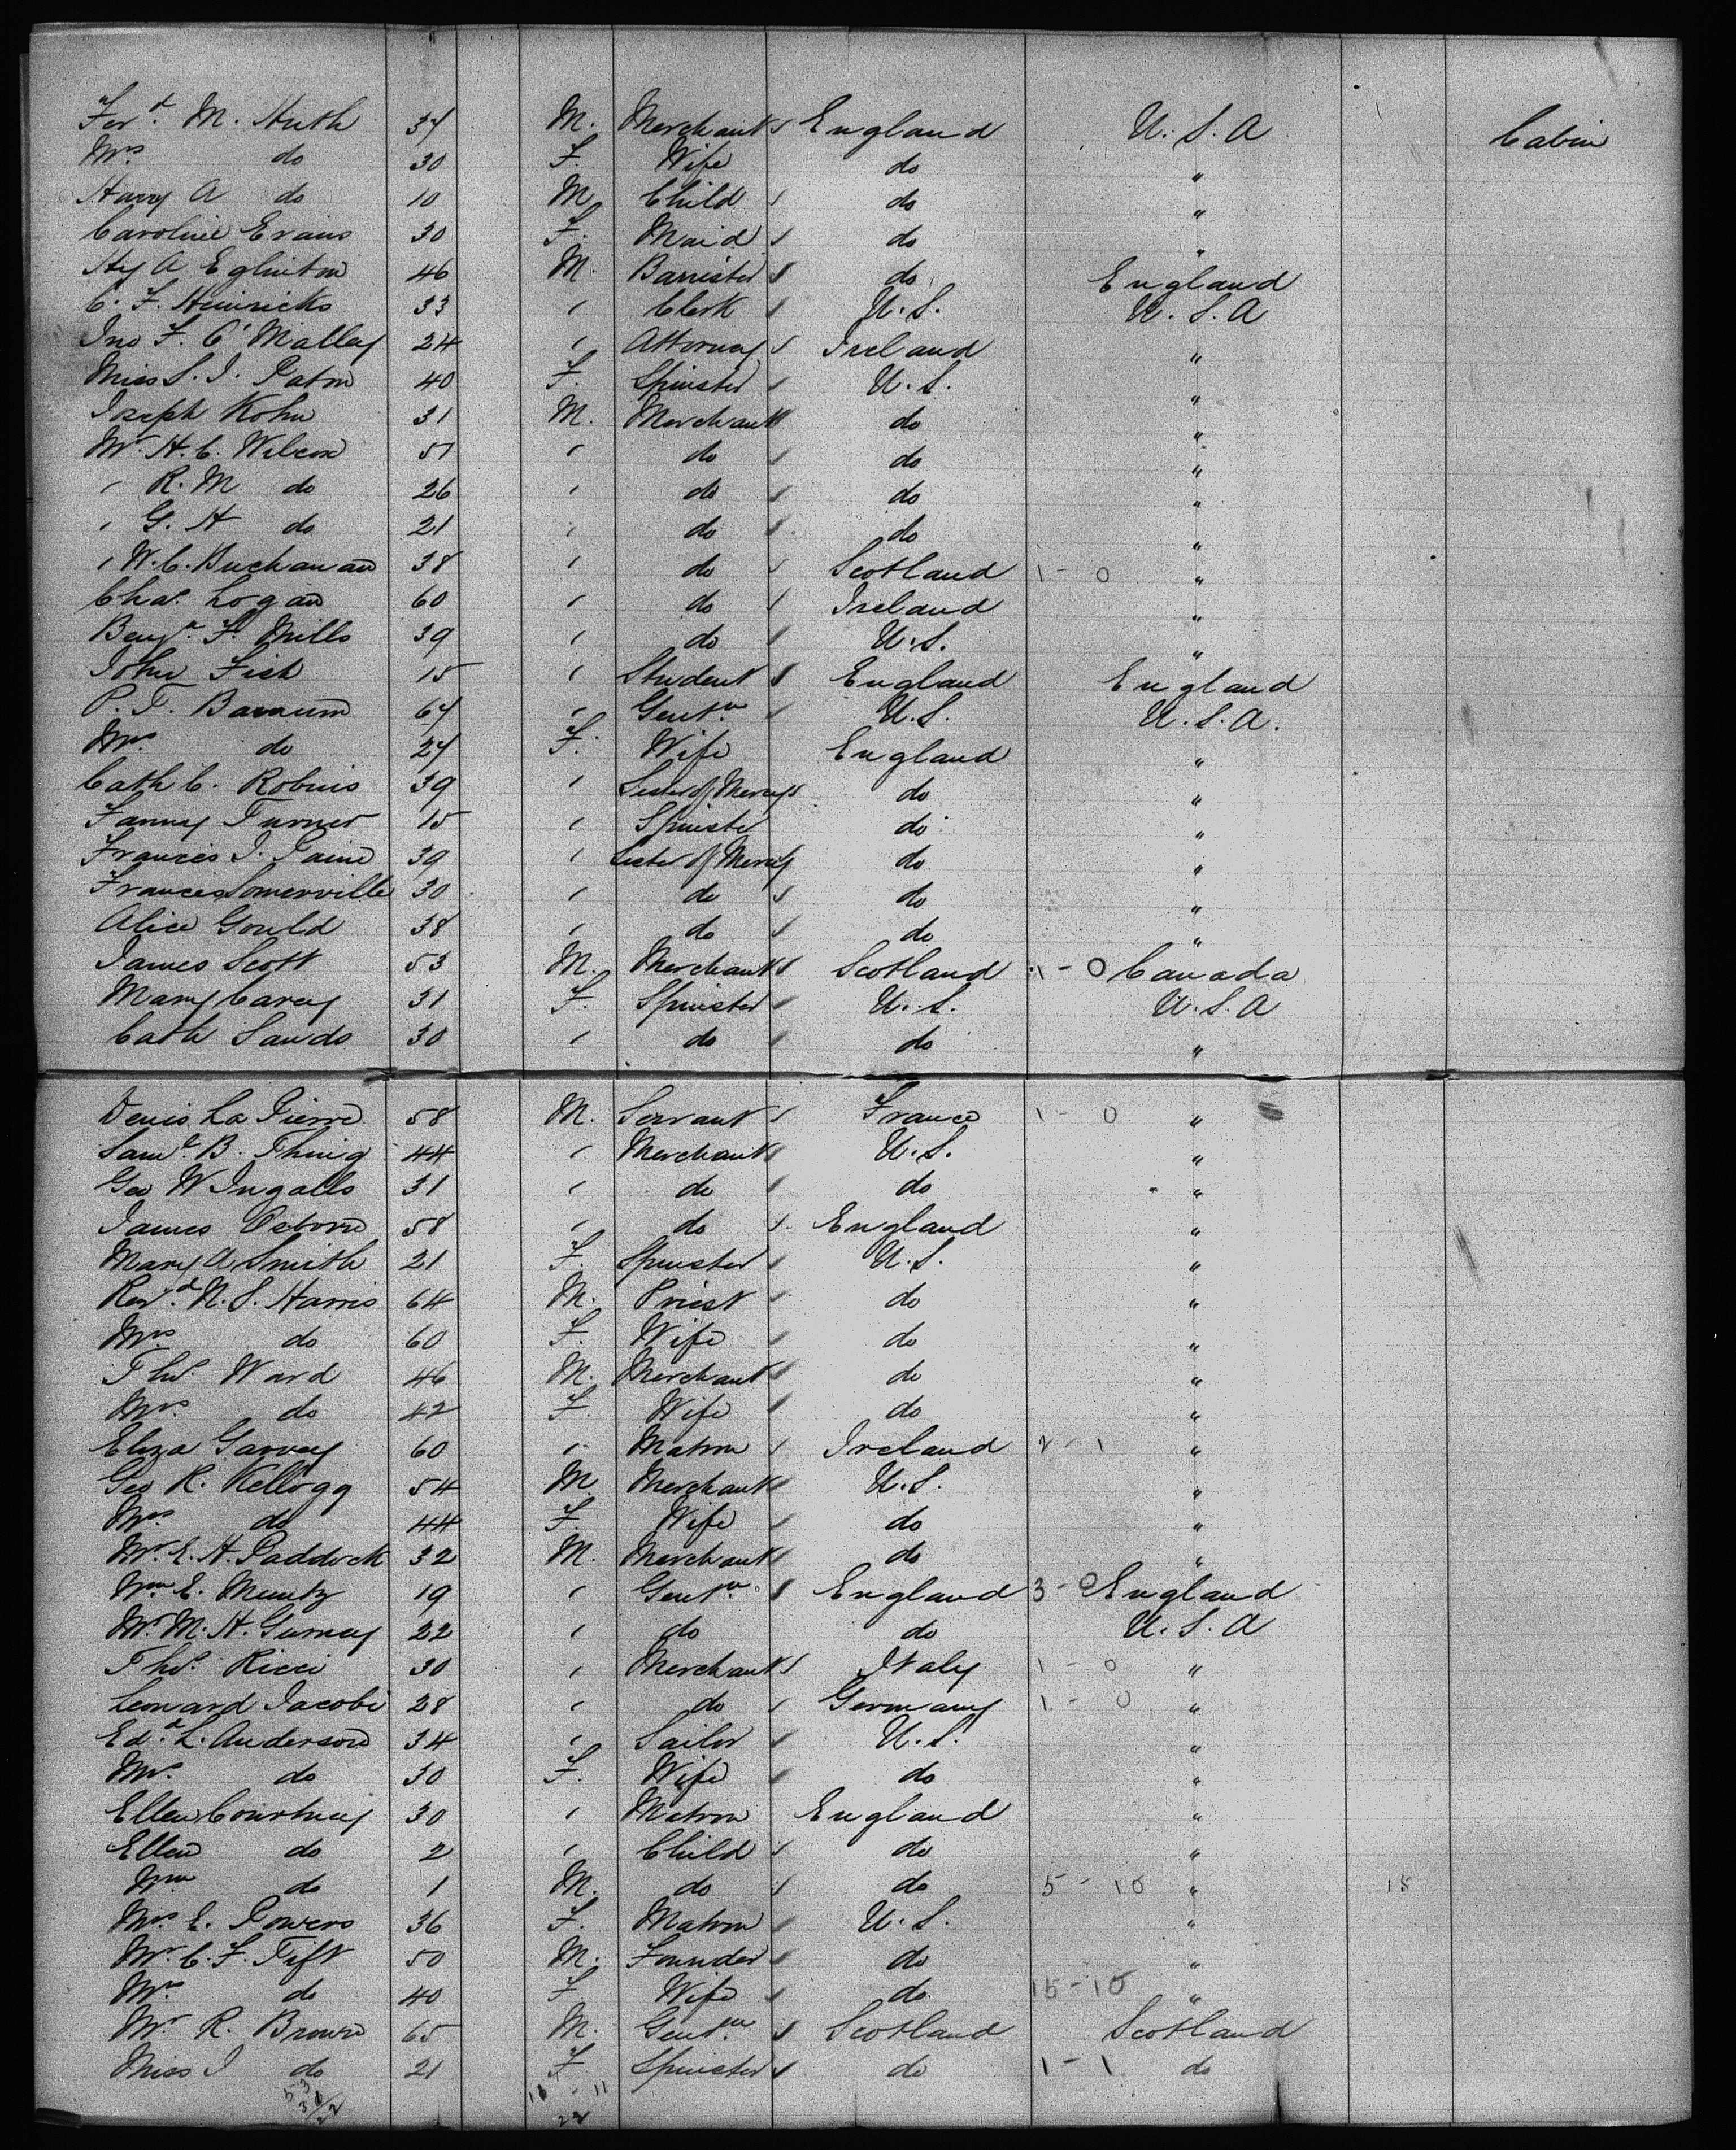 Ferd. M. Huth 37 M. Merchant England U.S.A Cabin
Mrs do 30 F. Wife do "
Harry A do 10 M Child do "
Caroline Evans 30 F. Maid do "
Hy A Eglinton 46 M. Barrister do England
C. F. Heinricks 33 " Clerk U.S. U.S.A
Jno F. O'Malley 24 " Attorney Ireland "
Miss S. J. Paton 40 F. Spinster U.S. "
Joseph Kohn 31 M. Merchant do "
Mr H. C. Wilcox 51 " do do "
" R. M do 26 " do do "
" G. H do 21 " do do "
" W. C. Buchanan 38 " do Scotland 1 - 0 "
Chas. Logan 60 " do Ireland "
Benjn. F. Mills 39 " do U.S. "
John Fish 15 " Student England England
P. T. Barnum 64 " Gentn U.S. U.S.A.
Mrs do 24 F. Wife England "
Cath C. Robins 39 " Sister of Mercy do "
Fanny Turner 15 " Spinster do "
Frances J. Paine 39 " Sister of Mercy do "
Frances Somerville 30 " do do "
Alice Gould 38 " do do "
James Scott 53 M. Merchant Scotland 1 - 0 Canada
Mary Carey 31 F. Spinster U.S. U.S.A
Cath Sands 30 " do do "
Denis La Pierre 58 M. Servant France 1 - 0 "
Saml. B. Thing 44 " Merchant U.S. "
Geo W Ingalls 31 " do do "
James Osborne 58 " do England "
Mary A Smith 21 F. Spinster U.S. "
Revd. N. S. Harris 64 M. Priest do "
Mrs do 60 F. Wife do "
Thos. Ward 46 M. Merchant do "
Mrs do 42 F. Wife do "
Eliza Garvey 60 " Matron Ireland 2 - 1 "
Geo R. Kellogg 54 M Merchant U.S. "
Mrs do 44 F. Wife do "
Mr. E. H. Paddock 32 M. Merchant do "
Wm E. Muntz 19 " Gentn England 3 - 0 England
Mr. M. H. Gurney 22 " do do U.S.A
Thos. Ricci 30 " Merchant Italy 1 - 0 "
Leonard Jacobi 28 " do Germany 1 - 0 "
Ed. L. Anderson 34 " Sailor U.S. "
Mrs. do 30 F. Wife do "
Ellen Courtney 30 " Matron England "
Ellen do 2 " Child do "
Wm do 1 M. do do 5 - 10 " 15
Mrs E. Powers 36 F. Matron U.S. "
Mr. C. F. Tift 50 M. Founder do "
Mrs do 40 F. Wife do 15 - 15 "
Mr R. Brown 65 M. Gentn Scotland Scotland
Miss J do 21 F Spinster do 1 - 1 do
53 11
22